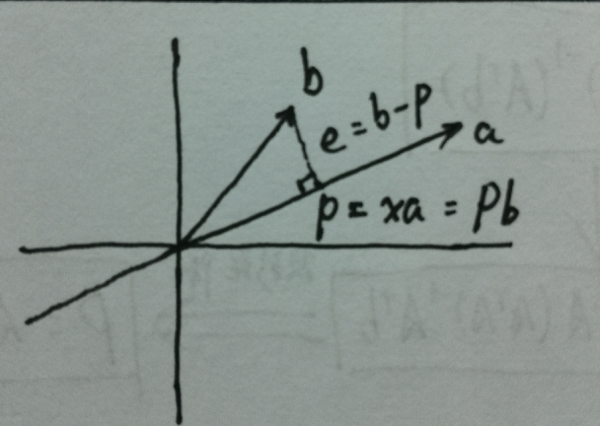 b
e = b - p
a
p = xa = Pb